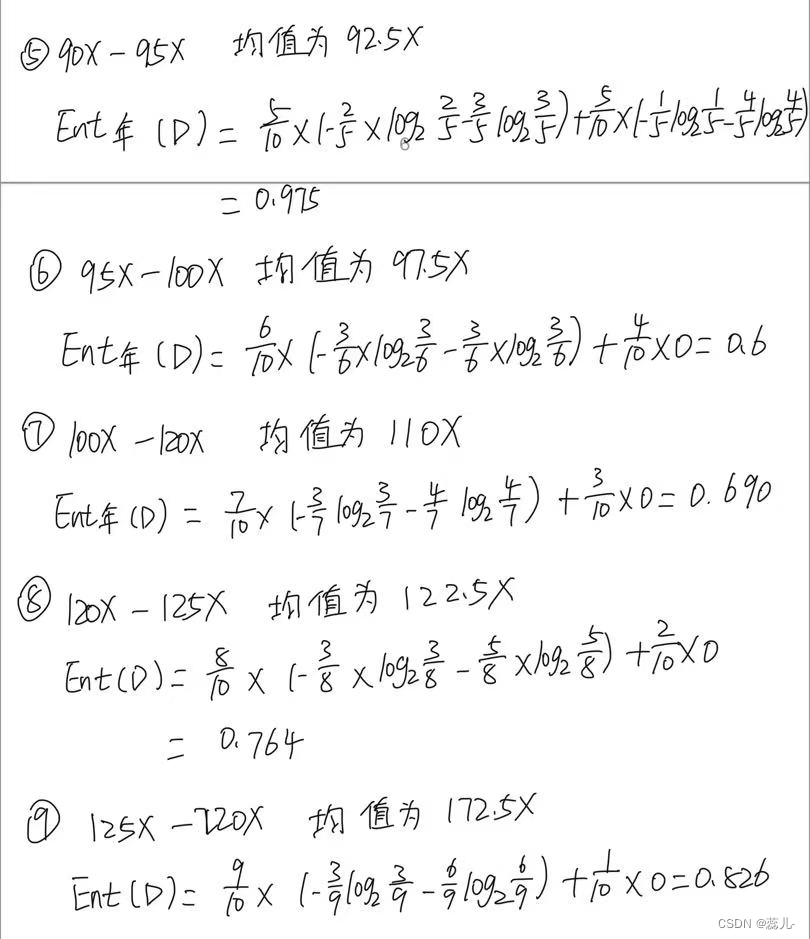 ⑤ 90X - 95X 均值为 92.5X
Ent年(D) = 5/10 × (-2/5 × log₂ 2/5 - 3/5 log₂ 3/5) + 5/10 × (-1/5 log₂ 1/5 - 4/5 log₂ 4/5)
= 0.975
⑥ 95X - 100X 均值为 97.5X
Ent年(D) = 6/10 × (-3/6 × log₂ 3/6 - 3/6 × log₂ 3/6) + 4/10 × 0 = 0.6
⑦ 100X - 120X 均值为 110X
Ent年(D) = 7/10 × (-3/7 log₂ 3/7 - 4/7 log₂ 4/7) + 3/10 × 0 = 0.690
⑧ 120X - 125X 均值为 122.5X
Ent(D) = 8/10 × (-3/8 × log₂ 3/8 - 5/8 × log₂ 5/8) + 2/10 × 0
= 0.764
⑨ 125X - 220X 均值为 172.5X
Ent(D) = 9/10 × (-3/9 log₂ 3/9 - 6/9 log₂ 6/9) + 1/10 × 0 = 0.826
CSDN @蕊儿-